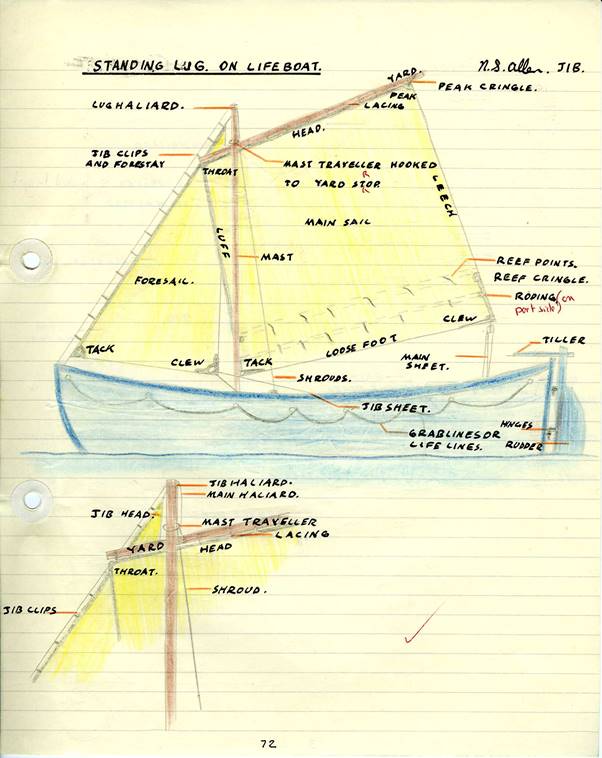 STANDING LUG. ON LIFEBOAT.
N.S. Allen. J1B.
YARD.
PEAK
PEAK CRINGLE.
LUG HALIARD.
LACING
HEAD.
JIB CLIPS
AND FORESTAY
THROAT
MAST TRAVELLER HOOKED
TO YARD STOP.
R
R
LEECH
MAIN SAIL
LUFF
MAST
REEF POINTS.
REEF CRINGLE.
FORESAIL.
RODING (on
port side)
CLEW
TILLER
TACK
CLEW
TACK
LOOSE FOOT
MAIN
SHEET.
SHROUDS.
JIB SHEET.
GRABLINES OR
LIFE LINES.
HINGES
RUDDER
JIB HALIARD.
MAIN HALIARD.
JIB HEAD.
MAST TRAVELLER
LACING
YARD
HEAD
THROAT.
SHROUD.
JIB CLIPS
72